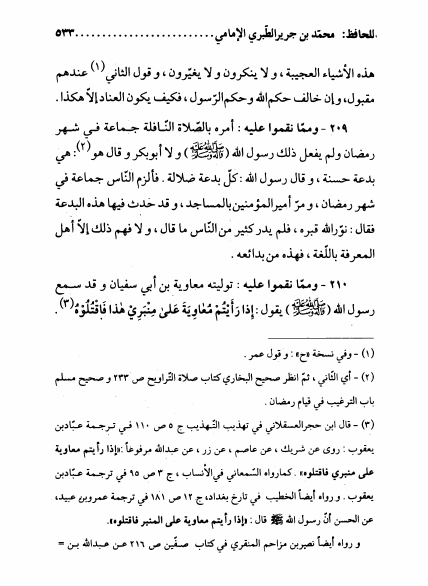 للحافظ: محمّد بن جرير الطّبري الإمامي ........................ ٥٣٣
هذه الأشياء العجيبة ، و لا ينكرون و لا يغيّرون ، و قول الثاني(١) عندهم
مقبول، وإن خالف حكم الله وحكم الرّسول ، فكيف يكون العناد إلاّ هكذا .
٢٠٩ - وممّا نقموا عليه : أمره بالصّلاة النّافلة جماعة في شهر
رمضان ولم يفعل ذلك رسول الله (ﷺ) و لا أبوبكر و قال هو(٢): هي
بدعة حسنة ، و قال رسول الله : كلّ بدعة ضلالة . فألزم النّاس جماعة في
شهر رمضان ، و مرّ أميرالمؤمنين بالمساجد ، و قد حدث فيها هذه البدعة
فقال : نوّرالله قبره ، فلم يدر كثير من النّاس ما قال ، و لا فهم ذلك إلاّ أهل
المعرفة باللّغة ، فهذه من بدائعه .
٢١٠ - وممّا نقموا عليه : توليته معاوية بن أبي سفيان و قد سمع
رسول الله (ﷺ) يقول : إِذا رَأَيْتُمْ مُعٰاوِيَةَ عَلىٰ مِنْبَرِيْ هٰذا فَاقْتُلُوْهُ(٣) .
(١) - وفي نسخة «ح» : و قول عمر .
(٢) - أي الثّاني ، ثمّ انظر صحيح البخاري كتاب صلاة التّراويح ص ٢٣٣ و صحيح مسلم
باب التّرغيب في قيام رمضان .
(٣) - قال ابن حجرالعسقلاني في تهذيب التّهذيب ج ٥ ص ١١٠ في ترجمة عبّادبن
يعقوب : روى عن شريك ، عن عاصم ، عن زر ، عن عبدالله مرفوعاً : «إذا رأيتم معاوية
على منبري فاقتلوه» . كمارواه السّمعاني في الأنساب ، ج ٣ ص ٩٥ في ترجمة عبّادبن
يعقوب . و رواه أيضاً الخطيب في تارخ بغداد، ج ١٢ ص ١٨١ في ترجمة عمروبن عبيد،
عن الحسن أنّ رسول الله ﷺ قال : «إذا رأيتم معاوية على المنبر فاقتلوه».
و رواه أيضاً نصيربن مزاحم المنقري في كتاب صفّين ص ٢١٦ عن عبدالله بن =